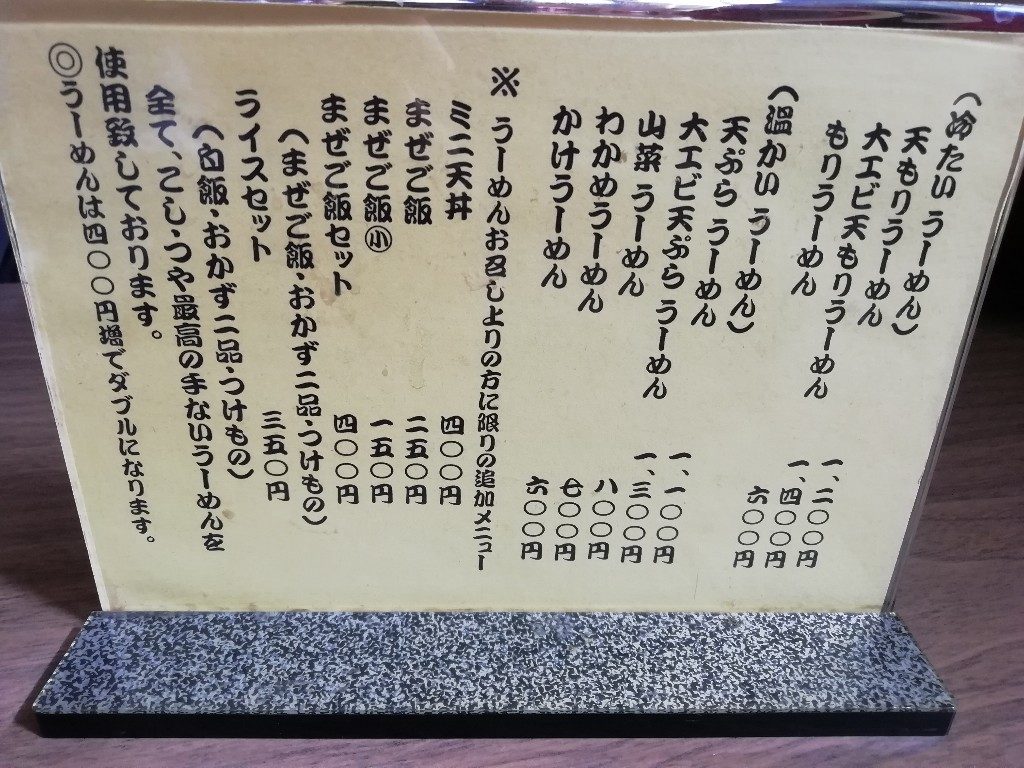 (冷たい うーめん)
天もりうーめん 一、二〇〇円
大エビ天もりうーめん 一、四〇〇円
もりうーめん 六〇〇円
(温かい うーめん)
天ぷら うーめん 一、一〇〇円
大エビ天ぷら うーめん 一、三〇〇円
山菜 うーめん 八〇〇円
わかめうーめん 七〇〇円
かけうーめん 六〇〇円
※ うーめんお召し上りの方に限りの追加メニュー
ミニ天丼 四〇〇円
まぜご飯 二五〇円
まぜご飯㊥小 一五〇円
まぜご飯セット 四〇〇円
(まぜご飯・おかず二品・つけもの)
ライスセット 三五〇円
(白飯・おかず二品・つけもの)
全て、こし・つや最高の手ないうーめんを
使用致しております。
◎うーめんは四〇〇円増でダブルになります。